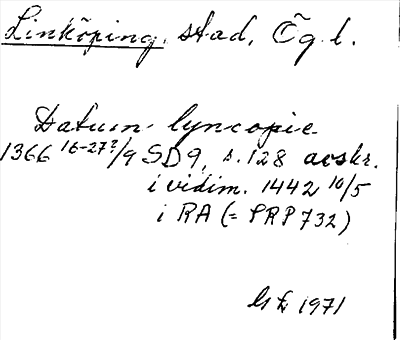 Linköping, stad, Ög. l.
Datum: lyncopie
1366 16-27?/9 SD 9, s. 128 avskr.
i vidim. 1442 10/5
i RA (= PRP 732)
1971